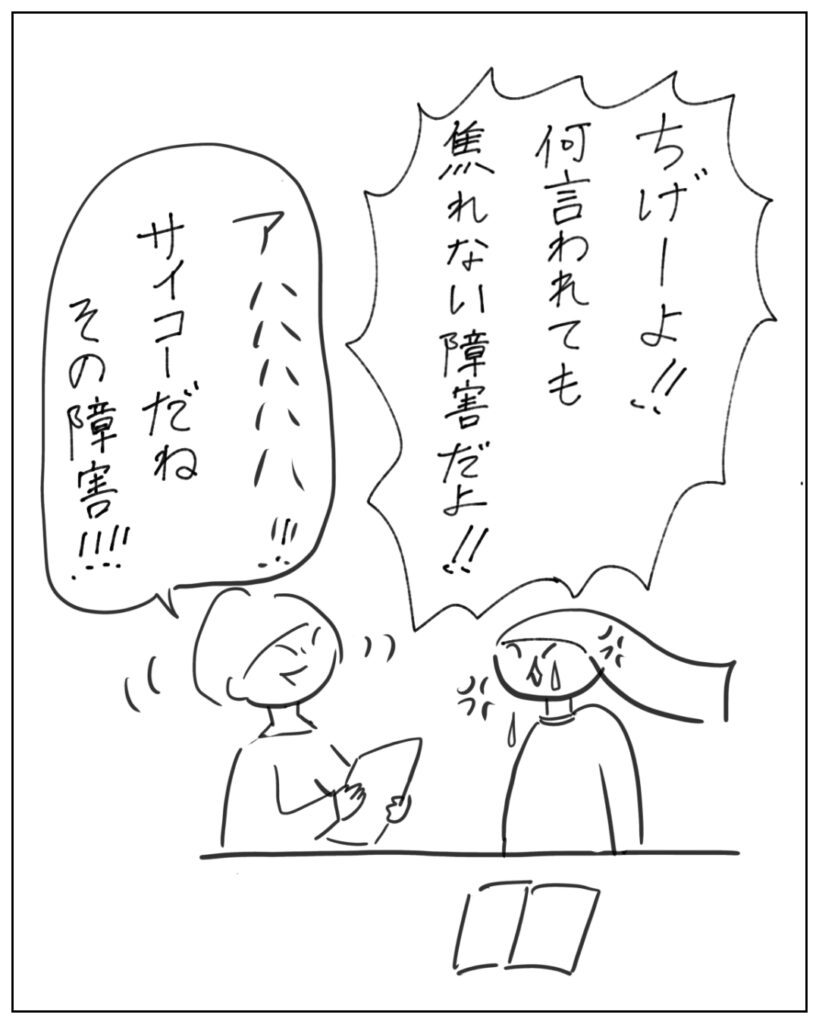 ちげーよ!!
何言われても
焦れない障害だよ!!
アハハハハハ!!!
サイコーだね
その障害!!!!